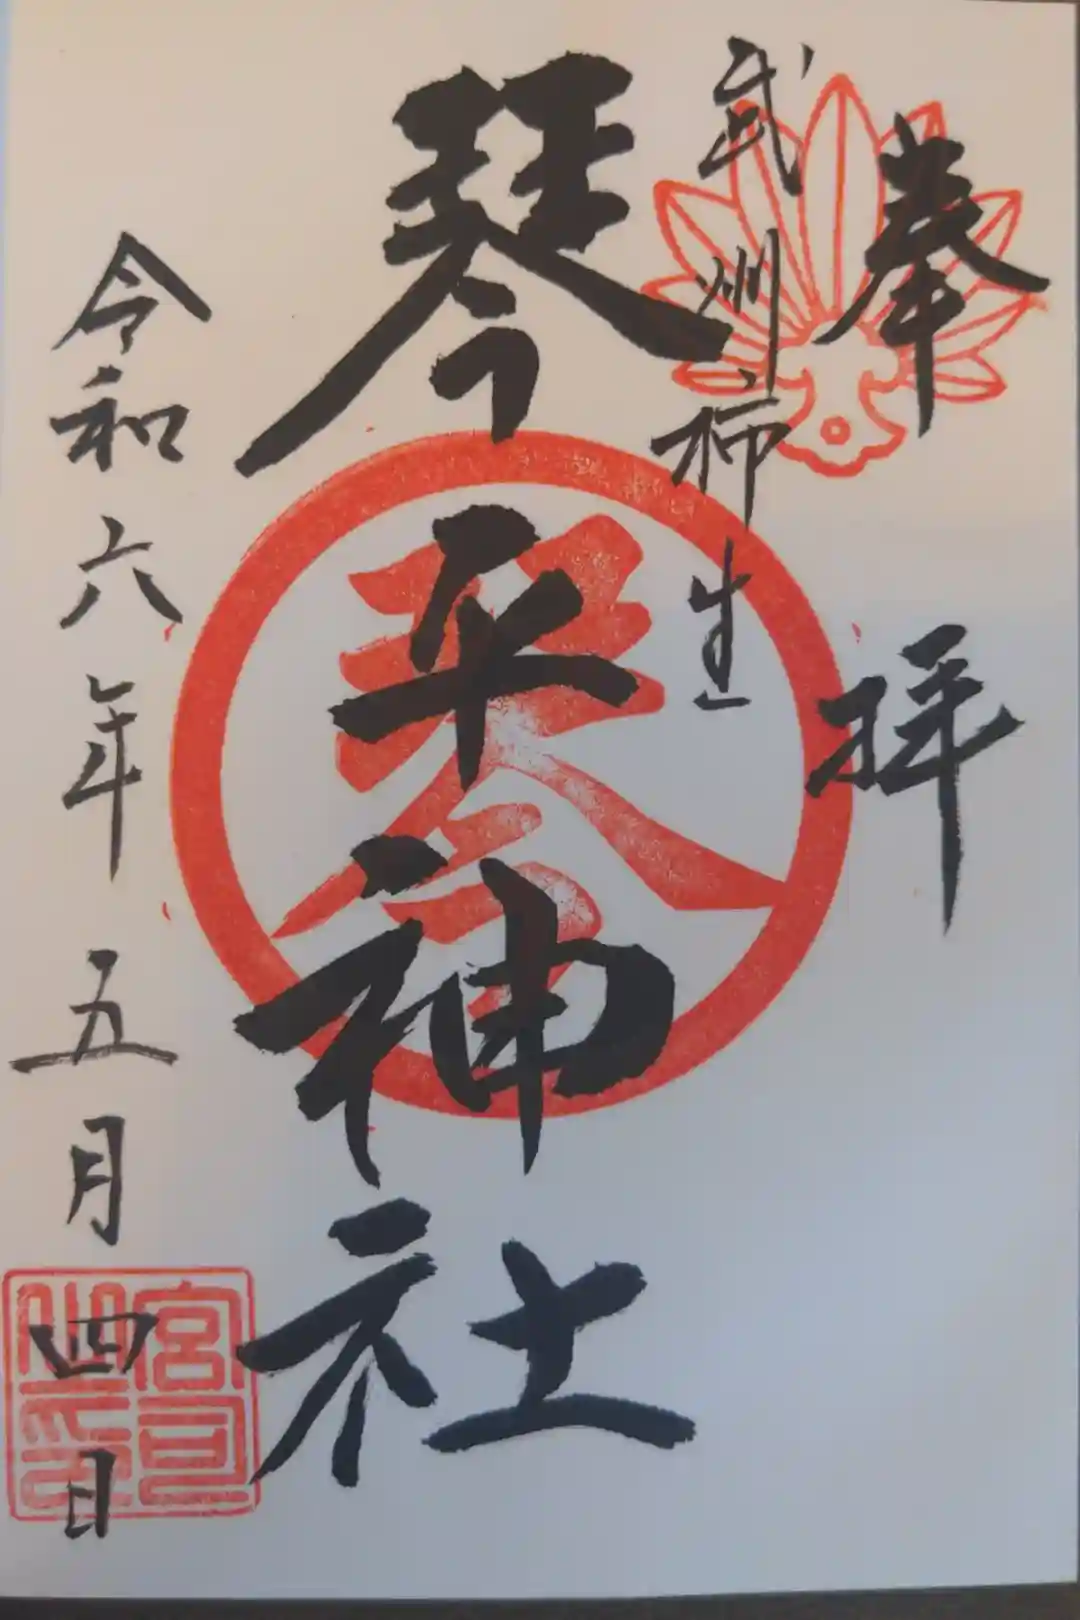 奉拝
武州柿生
琴平神社
琴
令和六年五月四日
宮司之印